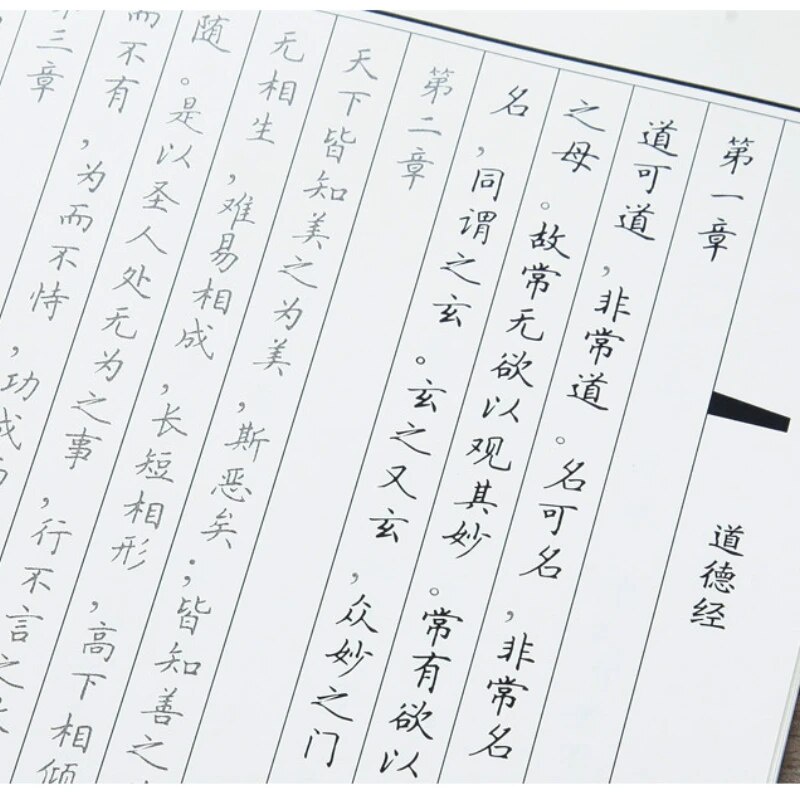 道德经
第一章
道可道，非常道。名可名，非常名
之母。故常无欲以观其妙。常有欲以
名，同谓之玄。玄之又玄，众妙之门
第二章
天下皆知美之为美，斯恶矣；皆知善之
无相生，难易相成，长短相形，高下相倾
随。是以圣人处无为之事，行不言之
而不有，为而不恃，功成
三章